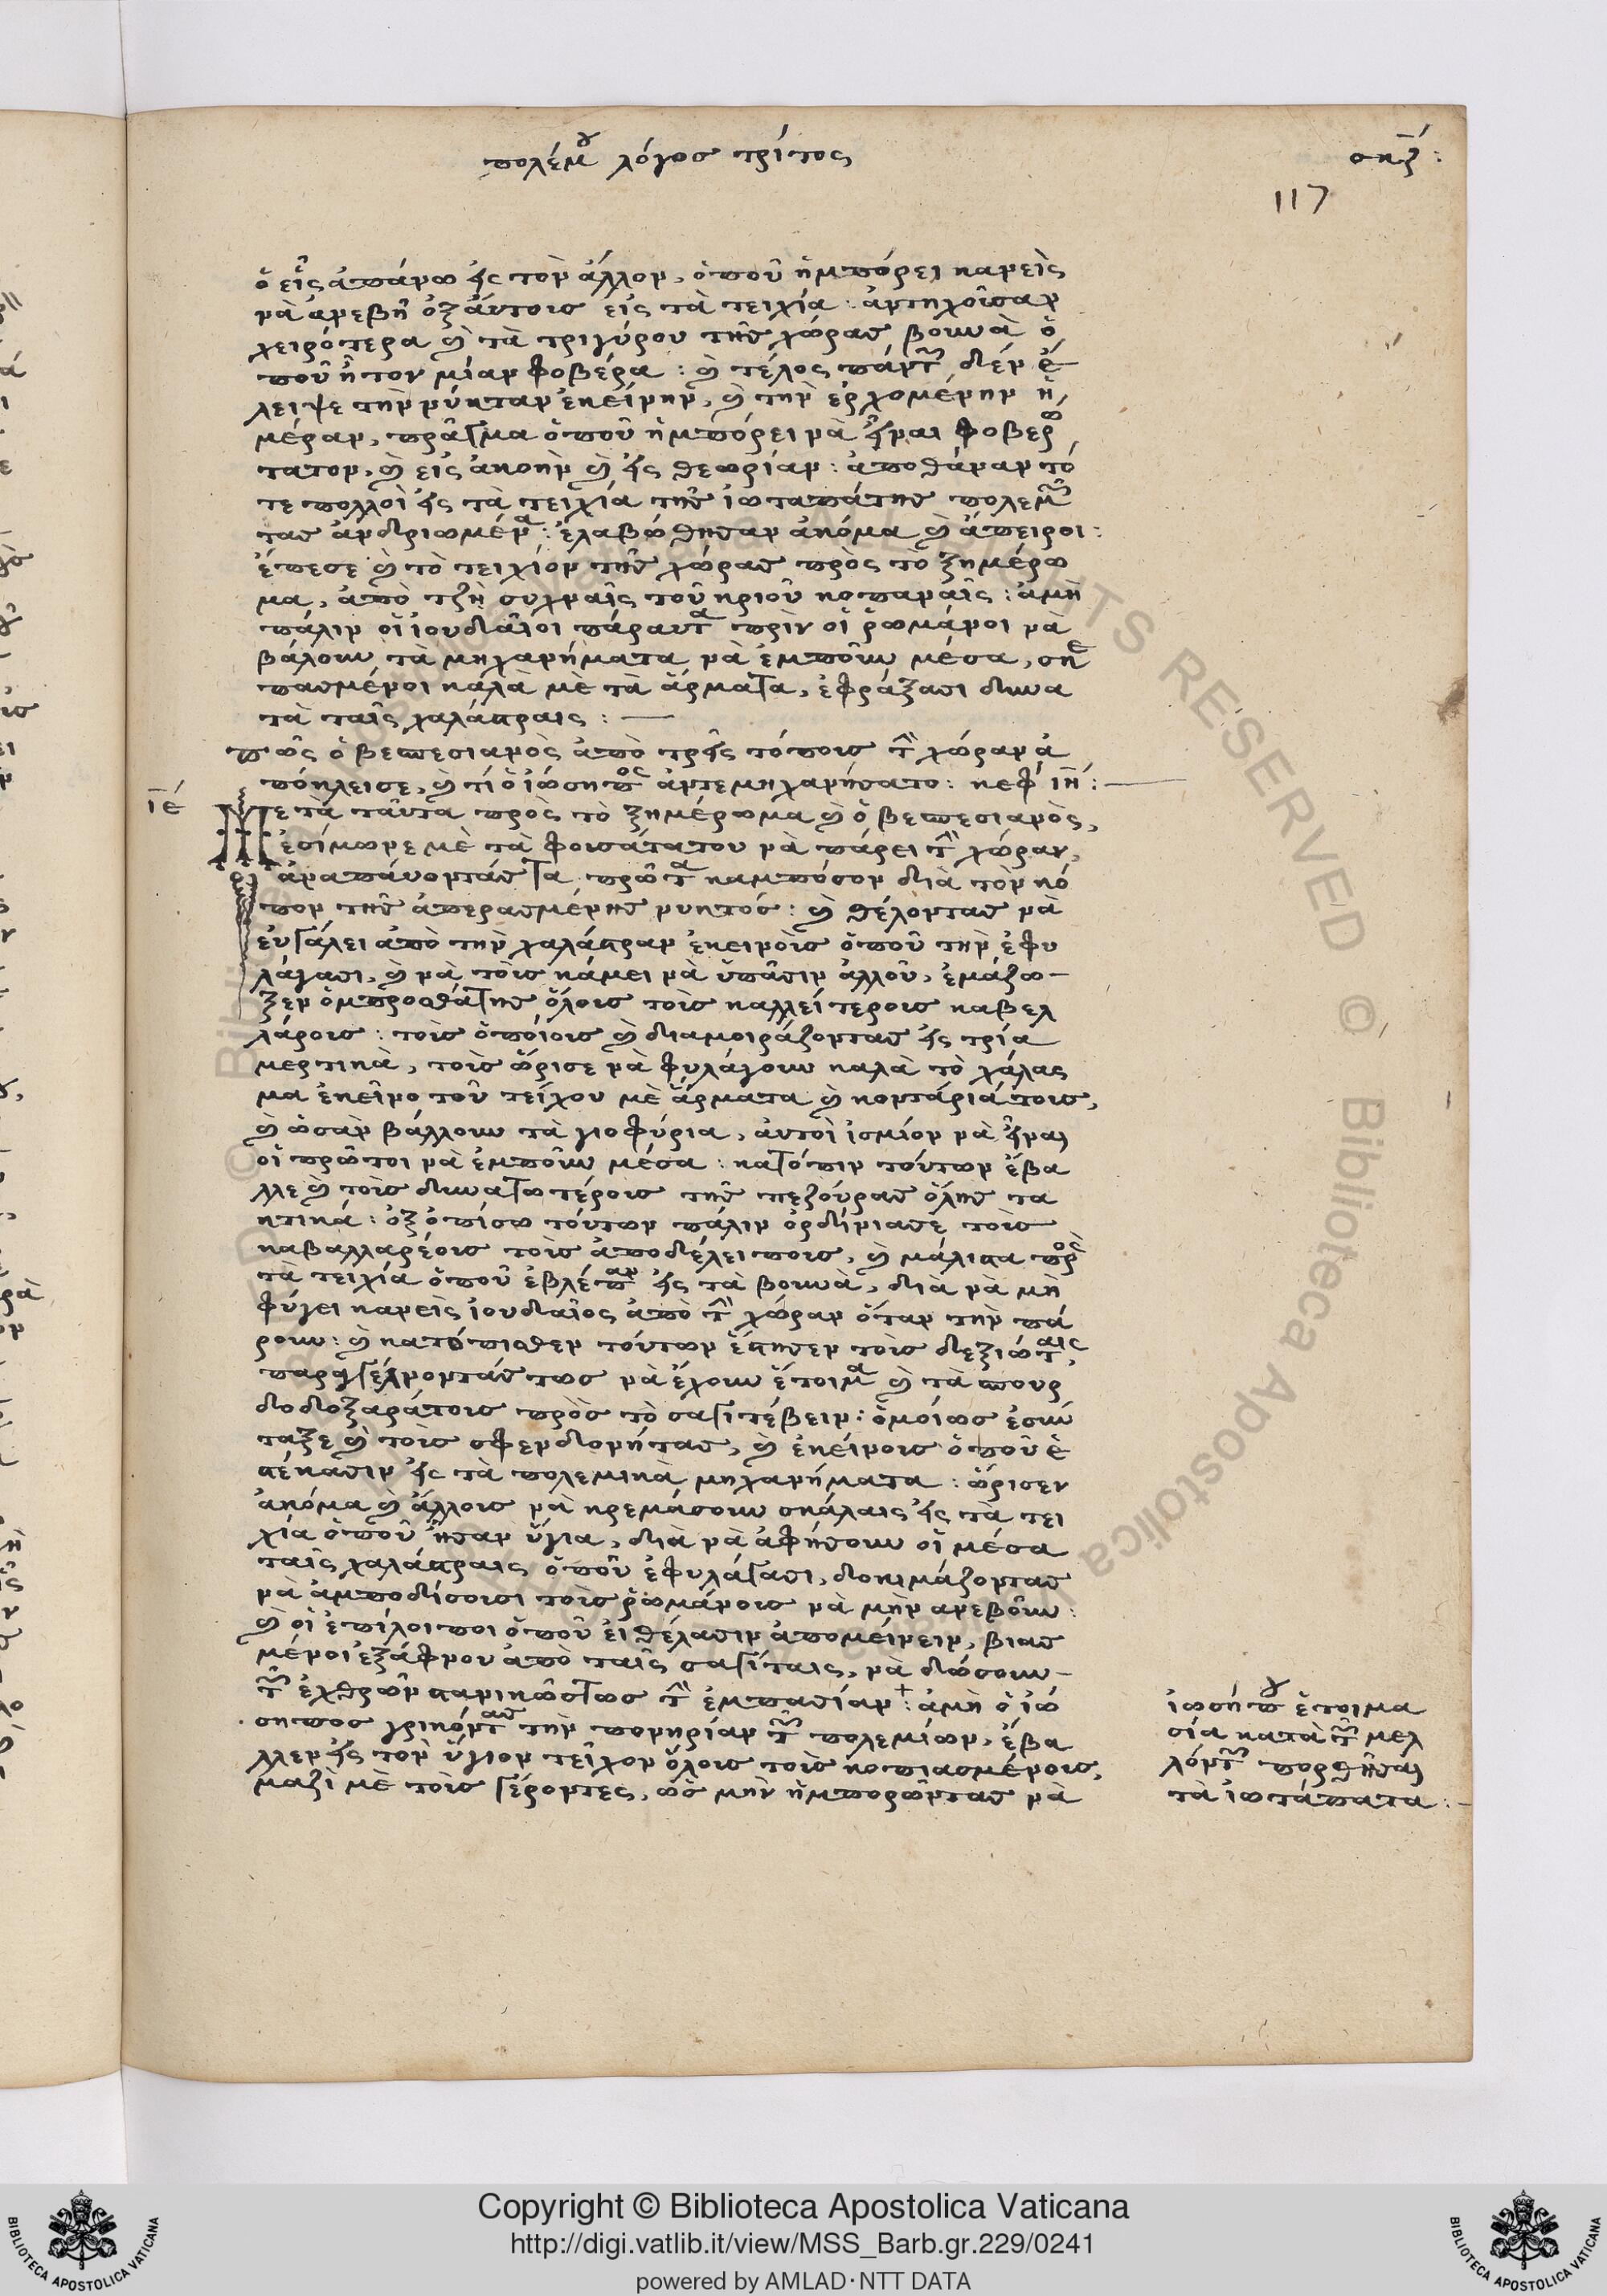 πολέμου λόγος τρίτος
σκζ:
117
ὁ εἷς ἀπάνω εἰς τὸν ἄλλον, ὁποῦ ἠμπόρει κανεὶς
νὰ ἀνεβῆ ὀξ αὐτοὺς εἰς τὰ τειχία: ἀντηχοῦσαν
χειρότερα καὶ τὰ τριγύρου τῆς χώρας βουνὰ ὁ
ποῦ ἦτον μίαν φοβέρα: καὶ τέλος πάντων δὲν ἔ
λειψε τὴν νύκταν ἐκείνην, καὶ τὴν ἐρχομένην ἡ
μέραν, πρᾶγμα ὁποῦ ἠμπόρει νὰ εἶναι φοβερώ
τατον, καὶ εἰς ἀκοὴν καὶ εἰς θεωρίαν: ἀποθάναν τό
τε πολλοὶ εἰς τὰ τειχία τῆς ἰωταπάτης πολεμῶν
τας ἀνδριωμένα: ἐλαβώθησαν ἀκόμα καὶ ἄπειροι:
ἔπεσε καὶ τὸ τειχίον τῆς χώρας πρὸς τὸ ξημέρω
μα, ἀπὸ τζὴ συχναῖς τοῦ κριοῦ κοπαναῖς: ἀμὴ
πάλιν οἱ ἰουδαῖοι πάραυτα πρὶν οἱ ῥωμάνοι νὰ
βάλουν τὰ μηχανήματα νὰ ἐμποῦν μέσα, σκε
πασμένοι καλὰ μὲ τὰ ἄρματα, ἐφράξασι δυνα
τὰ ταῖς χαλάστραις:
πῶς ὁ βεσπεσιανὸς ἀπὸ τρεῖς τόπους τὴν χώραν ἀ
πόκλεισε, καὶ τί ὁ ἰώσηπος ἀντεμηχανήσατο: κεφ ιη:
ιε
Μετὰ ταῦτα πρὸς τὸ ξημέρωμα καὶ ὁ βεσπεσιανὸς,
ἐσίμωνε μὲ τὰ φουσάτατου νὰ πάρει τὴν χώραν,
ἀναπαύοντάς τα πρῶτα καμπόσον διὰ τὸν κό
πον τῆς ἀπερασμένης νυκτός: καὶ θέλοντας νὰ
ἐυγάλει ἀπὸ τὴν χαλάστραν ἐκεινοὺς ὁποῦ τὴν ἐφυ
λάγασι, καὶ νὰ τοὺς κάμει νὰ ὑπᾶσιν ἀλλοῦ, ἐμάζω
ξεν ὀμπροσθάτης ὅλους τοὺς καλλείτερους καβελ
λάρους: τοὺς ὁποίους καὶ διαμοιράζοντας εἰς τρία
μερτικὰ, τοὺς ὥρισε νὰ φυλάγουν καλὰ τὸ χάλας
μα ἐκεῖνο τοῦ τείχου μὲ ἄρματα καὶ κοντάριά τους,
καὶ ὡσὰν βάλλουν τὰ γιοφύρια, αὐτοὶ ἰσμίον νὰ εἶναι
οἱ πρῶτοι νὰ ἐμποῦν μέσα: κατόπιν τούτων ἔβα
λλε καὶ τοὺς δυνατωτέρους τῆς πεζούρας ὅλης τα
κτικά: ὀξοπίσω τούτων πάλιν ὀρδίνιασε τοὺς
καβαλλαρέους τοὺς ἀποδέλειπους, καὶ μάλιστα πρὸς
τὰ τειχία ὁποῦ ἐβλέπαν εἰς τὰ βουνὰ, διὰ νὰ μὴ
φύγει κανεὶς ἰουδαῖος ἀπὸ τὴν χώραν ὅταν τὴν πά
ρουν: καὶ κατόπισθεν τούτων ἔστησεν τοὺς δεξιώταις,
παραγγέλνοντάς τως νὰ ἔχουν ἕτοιμα καὶ τὰ πουρ
δοδοξαράτους πρὸς τὸ σαγιτέβειν: ὁμοίως ἐσύν
ταξε καὶ τοὺς σφενδονήτας, καὶ ἐκείνους ὁποῦ ἐ
στέκασιν εἰς τὰ πολεμικὰ μηχανήματα: ὥρισεν
ἀκόμα καὶ ἄλλους νὰ κρεμάσουν σκάλαις εἰς τὰ τει
χία ὁποῦ ἦσαν ὕγια, διὰ νὰ ἀφήσουν οἱ μέσα
ταῖς χαλάστραις ὁποῦ ἐφυλάγασι, δοκιμάζοντας
νὰ ἀμποδίσουσι τοὺς ῥωμάνους νὰ μὴν ἀνεβοῦν:
καὶ οἱ ἐπίλοιποι ὁποῦ εἰθέλασιν ἀπομείνειν, βιασ
μένοι ἐξάφνου ἀπὸ ταῖς σαγίταις, νὰ δώσουν
τῶν ἐχθρῶν στανικῶς τως τὴν ἐμπασίαν+: ἀμὴ ὁ ἰώ
σηπος γρικόντας τὴν πονηρίαν τῶν πολεμίων, ἔβα
λλεν εἰς τὸν ὕγιον τεῖχον ὅλους τοὺς κοπιασμένους,
μαζὶ μὲ τοὺς γέροντες, ὡς μὴν ἠμπορῶντας νὰ
ἰωσήπου ἑτοιμα
σία κατὰ τῶν μελ
λόντων πορθῆσαι
τὰ ἰωτάπατα:
Copyright © Biblioteca Apostolica Vaticana
http://digi.vatlib.it/view/MSS_Barb.gr.229/0241
powered by AMLAD·NTT DATA
BIBLIOTECA APOSTOLICA VATICANA
BIBLIOTECA APOSTOLICA VATICANA